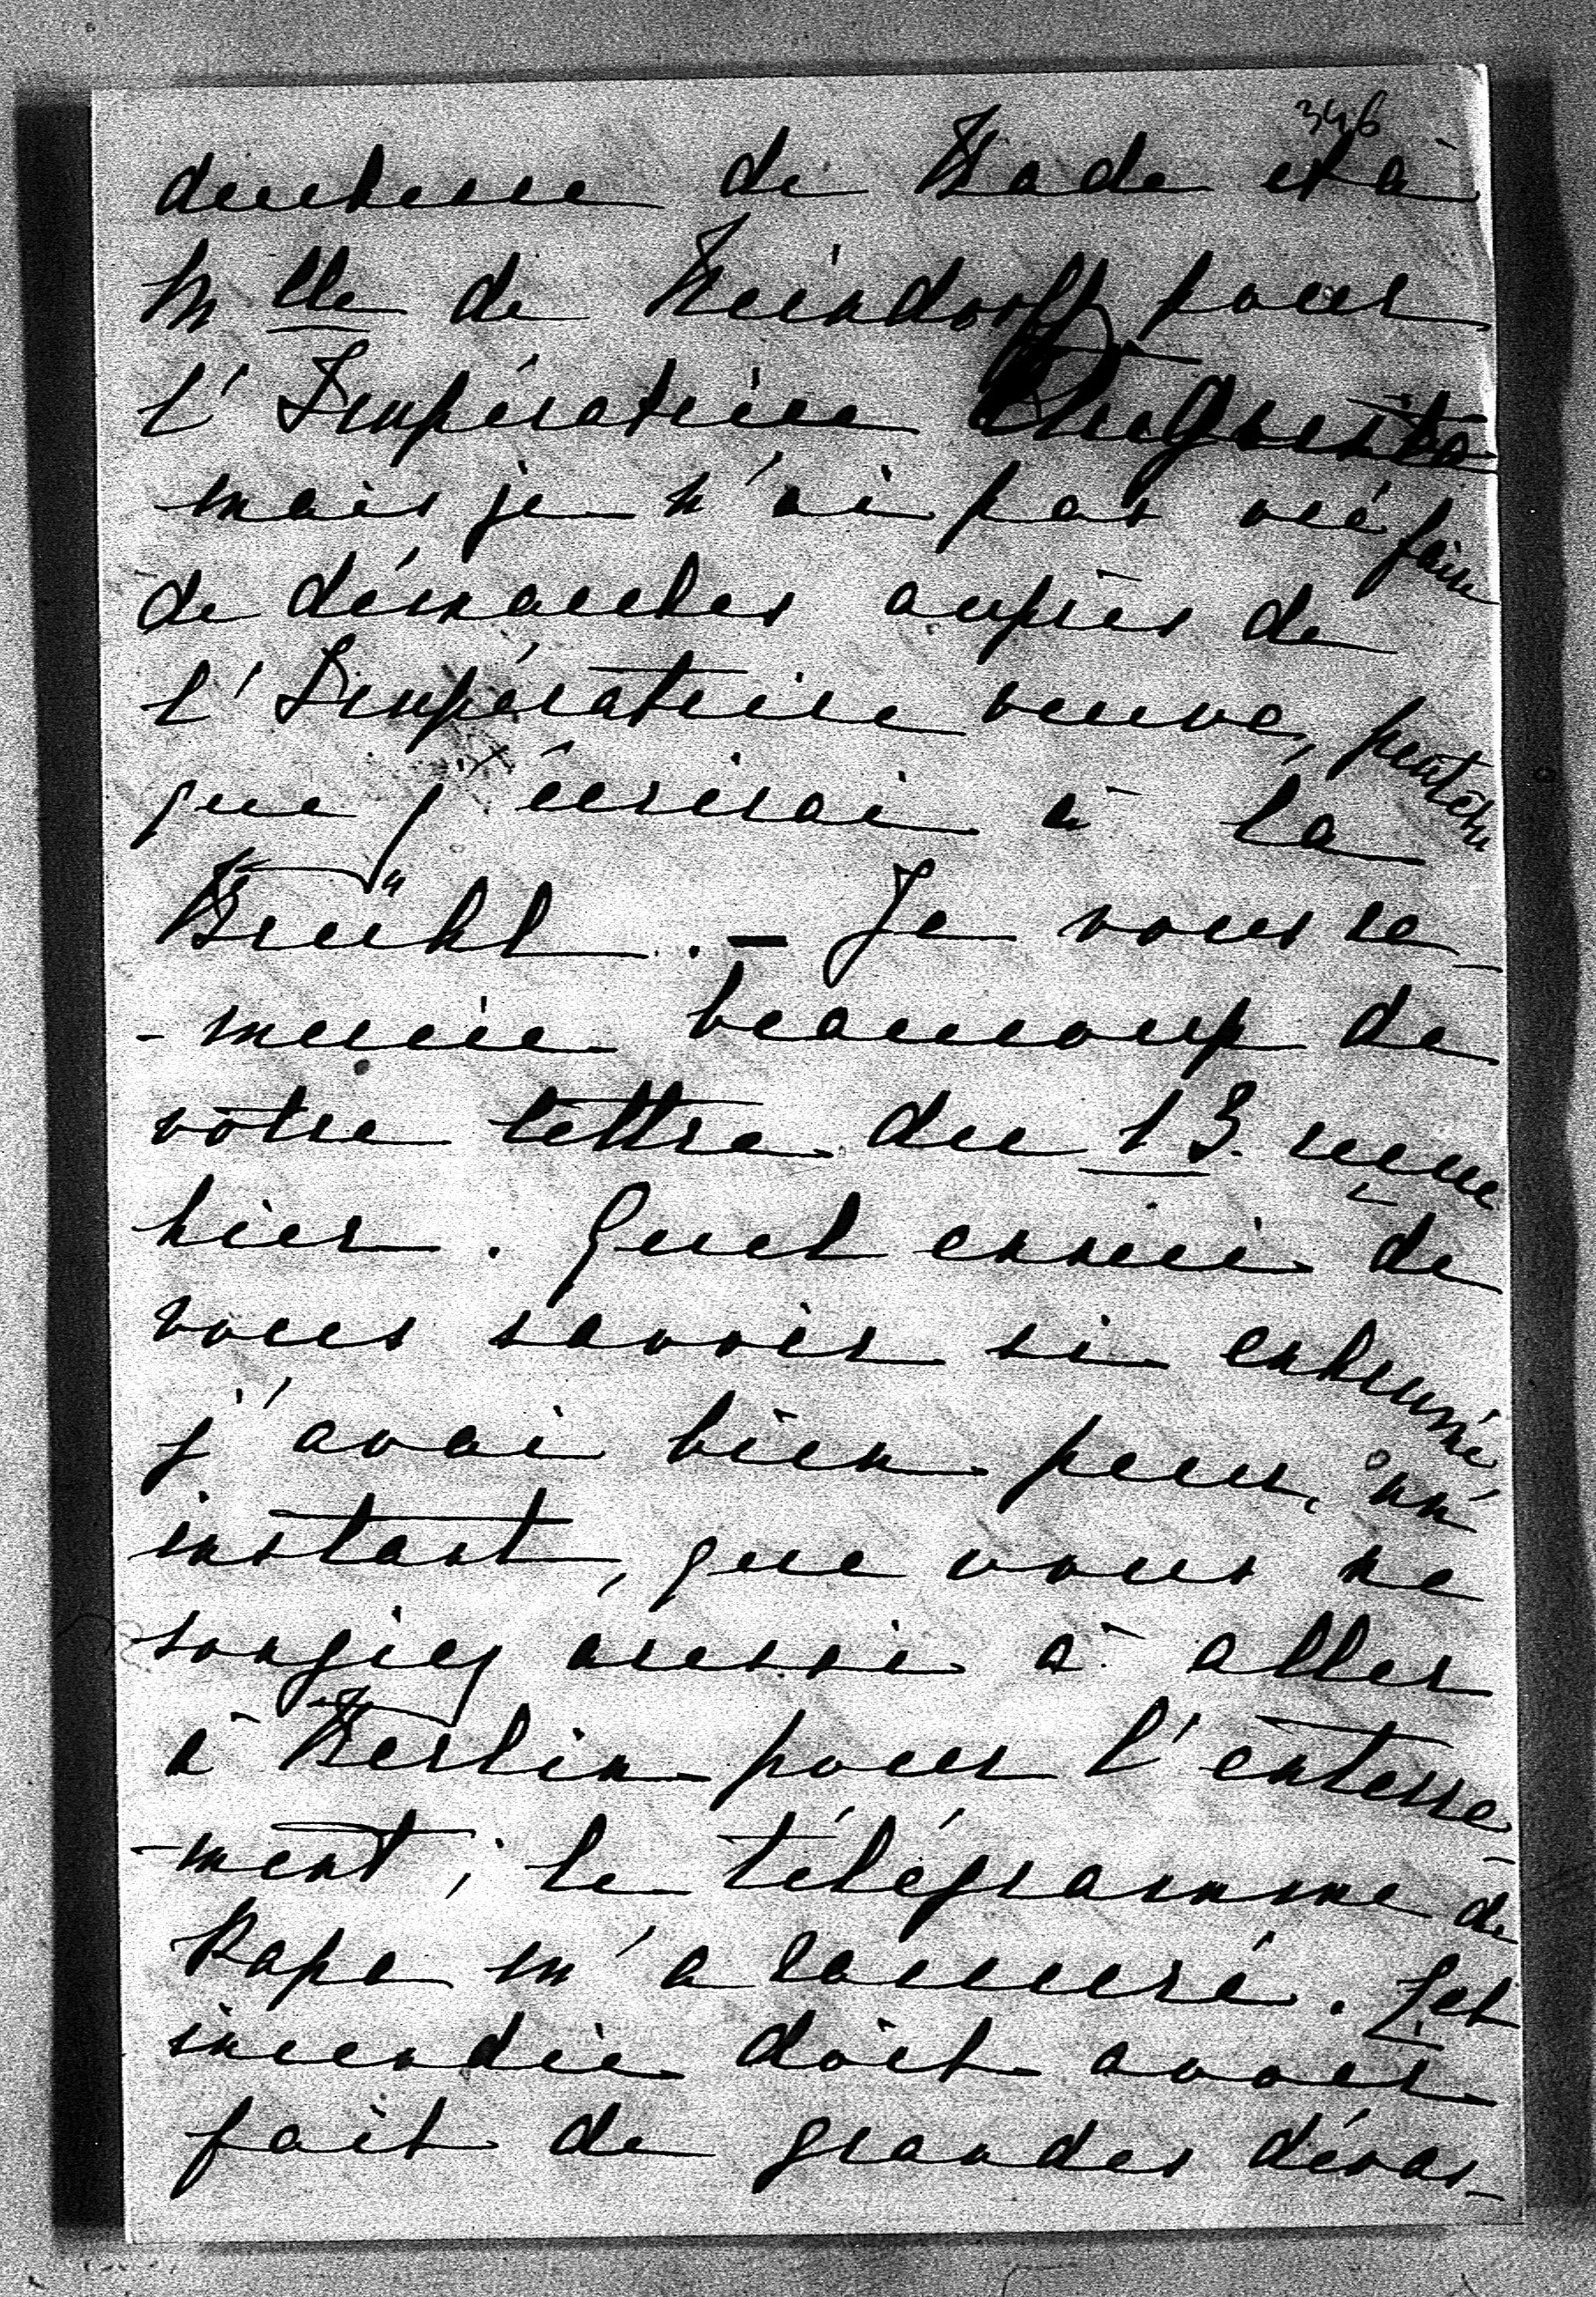 346
duchesse de Bade et à
Mlle de Neindorff pour
l'Impératrice Augusta
mais je n'ai pas osé faire
de démarches auprès de
l'Impératrice veuve, peutêtre
que j'écrirai à la
Brühl. - Je vous re-
-mercie beaucoup de
votre lettre du 13 reçue
hier. Quel ennui de
vous savoir si enrhumé
j'avai bien peur, un
instant, que vous ne
songiez aussi à aller
à Berlin pour l'enterre-
-ment; le télégramme de
Papa m'a rassuré. Cet
incendie doit avoir
fait de grandes dévas-